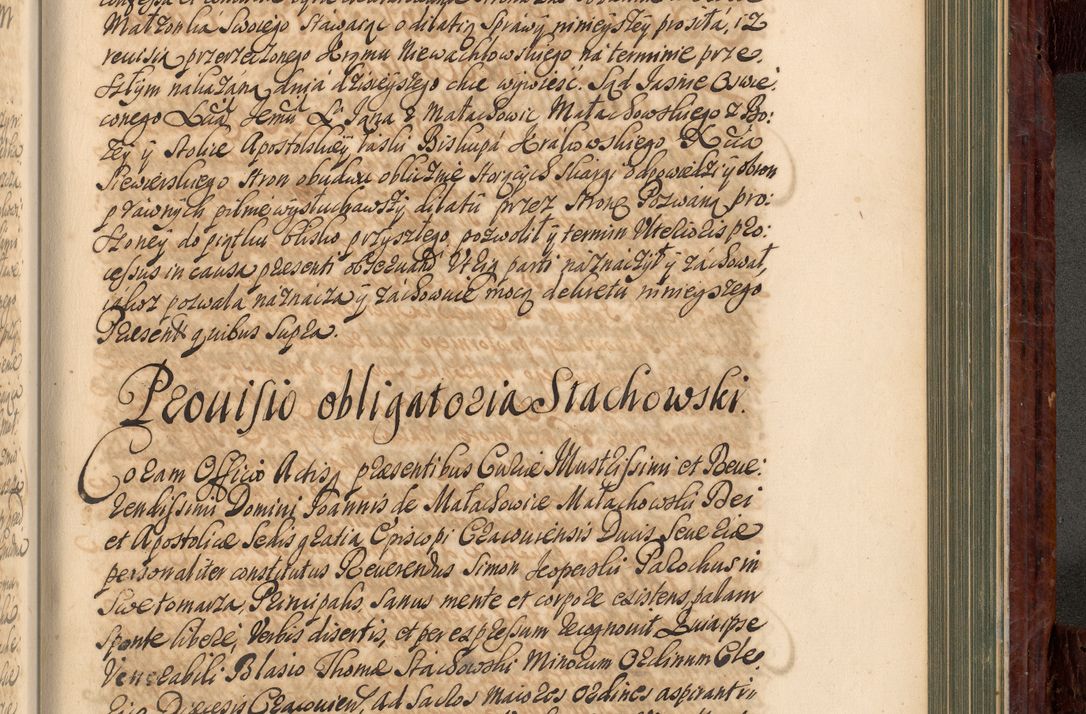 Małżonka Swoiego Stawaiąc o dilatią Sprawy ninieyszey prosiła, iż
reuisią przerzeczonego Xręmu Niewachlowskiego na terminie prze
szłym nakazaną dnia dzisieyszego chce wywieść. Sąd Jasnie Oswie:
conego Jemu Jana z Małachowic Małachowskiego z Bo:
żey y Stolice Apostolskiey łaski Biskupa Krakowskiego, Xcia
Siewierskiego stron obudwu oblicznie stoiących skargi odpowiedzi y obron
prawnych pilnie wysłuchawszy dilatii przez stronę Pozwaną pro:
szoney do piątku blisko przyszłego pozwolił y termin Vlterioris pro:
cessus in causa præsenti obseruand Vtriq parti naznaczył y zachował,
iakoż pozwala naznacza y zachowuie mocą dekretu ninieyszego
Præsent quibus supra.
Prouisio obligatoria Stachowski.
Coram Officio Actisq præsentibus Curiæ Illustrissimi et Reue:
rendissimi Domini Joannis de Małachowice Małachowski Dei
et Apostolicæ Sedis gratia Episcopi Cracouiensis Ducis Seueriæ
personaliter constitutus Reuerendus Simon Jeoperski Parochus in
Swetomarza, Principalis, sanus mente et corpore existens, palam
sponte libere, Verbis disertis, et per expressam recognouit, Quia ipse
Venerabili Blasio Thomæ Stachowski Minorum Ordinum Cle,
rico Diæcesis Cracouien, ad Sacros maiores ordines aspiranti,